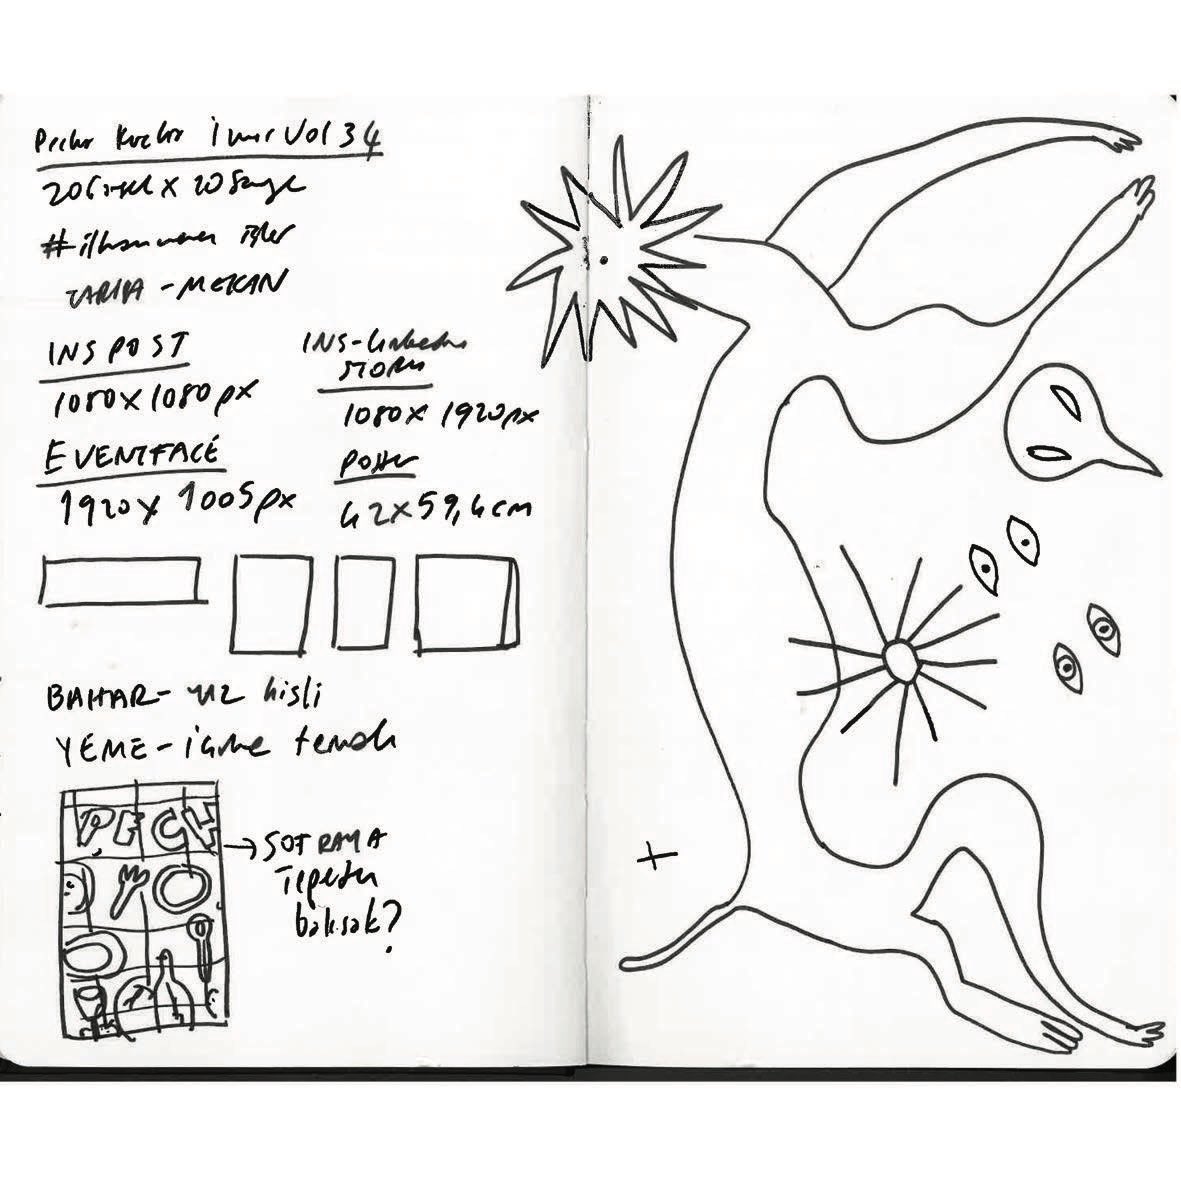 Pecha Kucha İzmir Vol 34
20 Görsel X 20 Saniye
#ilham veren işler
TARİH - MEKAN
INS POST
1080 X 1080 px
INS - Linkedin
STORY
1080 X 1920 px
EVENTFACE
1920 X 1005 px
Poster
42 X 59,4 cm
BAHAR - YAZ hisli
YEME - içme temalı
PECH
SOFRAYA
Tepeden
baksak?